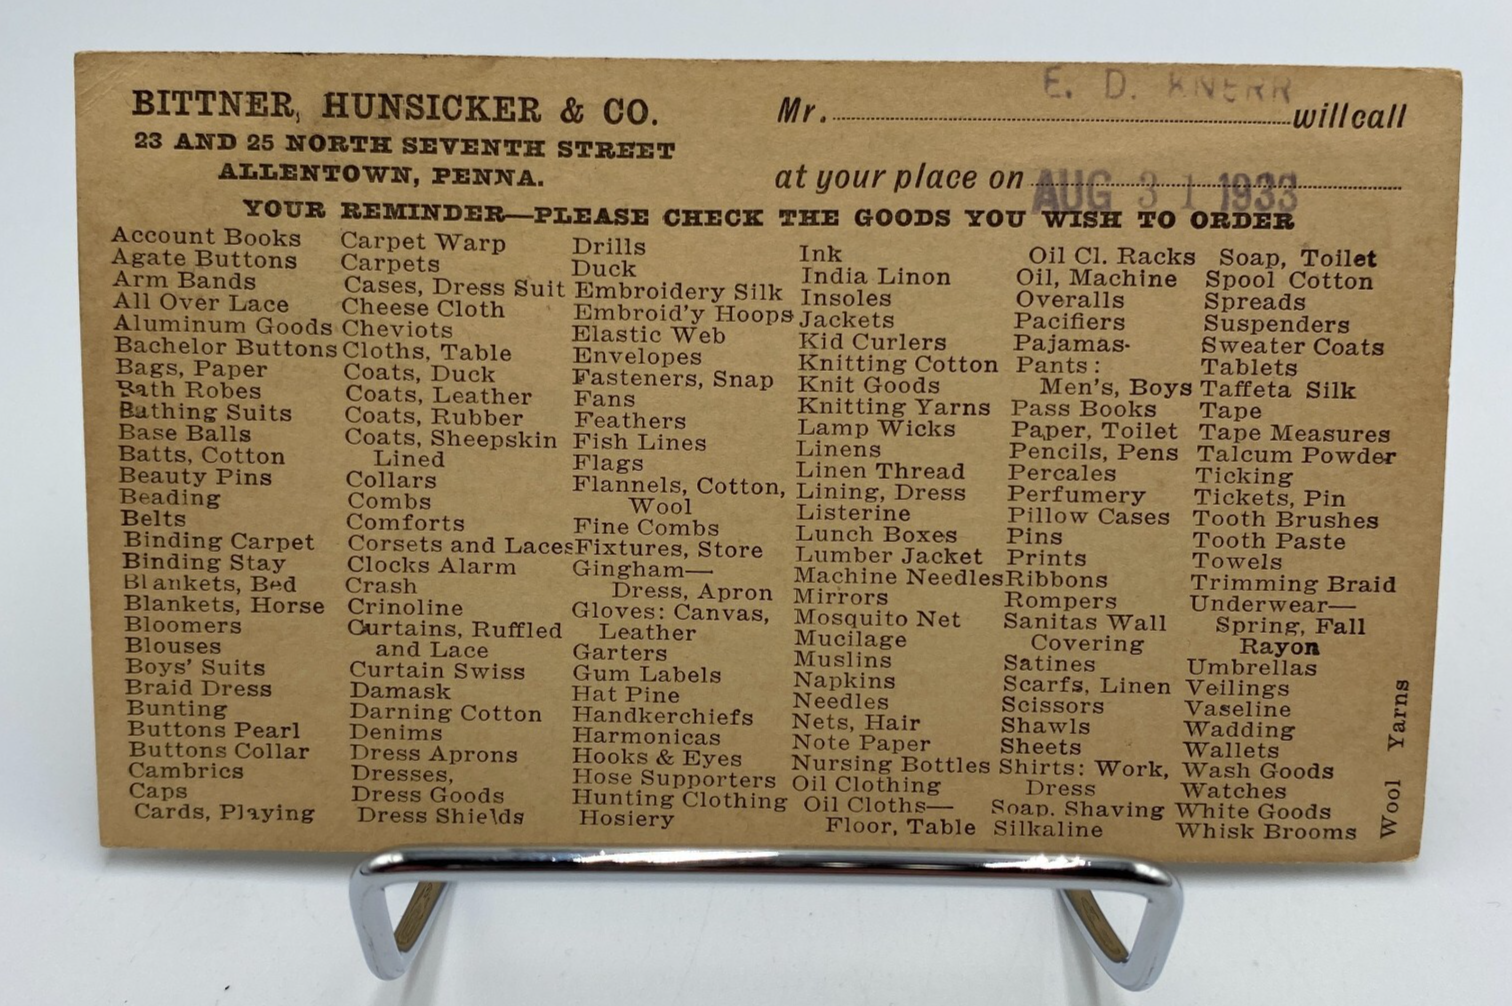 BITTNER, HUNSICKER & CO.
23 AND 25 NORTH SEVENTH STREET
ALLENTOWN, PENNA.
E. D. KNERR
Mr. will call
at your place on AUG 31 1933
YOUR REMINDER—PLEASE CHECK THE GOODS YOU WISH TO ORDER
Account Books
Agate Buttons
Arm Bands
All Over Lace
Aluminum Goods
Bachelor Buttons
Bags, Paper
Bath Robes
Bathing Suits
Base Balls
Batts, Cotton
Beauty Pins
Beading
Belts
Binding Carpet
Binding Stay
Blankets, Bed
Blankets, Horse
Bloomers
Blouses
Boys' Suits
Braid Dress
Bunting
Buttons Pearl
Buttons Collar
Cambrics
Caps
Cards, Playing
Carpet Warp
Carpets
Cases, Dress Suit
Cheese Cloth
Cheviots
Cloths, Table
Coats, Duck
Coats, Leather
Coats, Rubber
Coats, Sheepskin
Lined
Collars
Combs
Comforts
Corsets and Laces
Clocks Alarm
Crash
Crinoline
Curtains, Ruffled
and Lace
Curtain Swiss
Damask
Darning Cotton
Denims
Dress Aprons
Dresses,
Dress Goods
Dress Shields
Drills
Duck
Embroidery Silk
Embroid'y Hoops
Elastic Web
Envelopes
Fasteners, Snap
Fans
Feathers
Fish Lines
Flags
Flannels, Cotton,
Wool
Fine Combs
Fixtures, Store
Gingham—
Dress, Apron
Gloves: Canvas,
Leather
Garters
Gum Labels
Hat Pine
Handkerchiefs
Harmonicas
Hooks & Eyes
Hose Supporters
Hunting Clothing
Hosiery
Ink
India Linon
Insoles
Jackets
Kid Curlers
Knitting Cotton
Knit Goods
Knitting Yarns
Lamp Wicks
Linens
Linen Thread
Lining, Dress
Listerine
Lunch Boxes
Lumber Jacket
Machine Needles
Mirrors
Mosquito Net
Mucilage
Muslins
Napkins
Needles
Nets, Hair
Note Paper
Nursing Bottles
Oil Clothing
Oil Cloths—
Floor, Table
Oil Cl. Racks
Oil, Machine
Overalls
Pacifiers
Pajamas
Pants:
Men's, Boys
Pass Books
Paper, Toilet
Pencils, Pens
Percales
Perfumery
Pillow Cases
Pins
Prints
Ribbons
Rompers
Sanitas Wall
Covering
Satines
Scarfs, Linen
Scissors
Shawls
Sheets
Shirts: Work,
Dress
Soap, Shaving
Silkaline
Soap, Toilet
Spool Cotton
Spreads
Suspenders
Sweater Coats
Tablets
Taffeta Silk
Tape
Tape Measures
Talcum Powder
Ticking
Tickets, Pin
Tooth Brushes
Tooth Paste
Towels
Trimming Braid
Underwear—
Spring, Fall
Rayon
Umbrellas
Veilings
Vaseline
Wadding
Wallets
Wash Goods
Watches
White Goods
Whisk Brooms
Wool Yarns